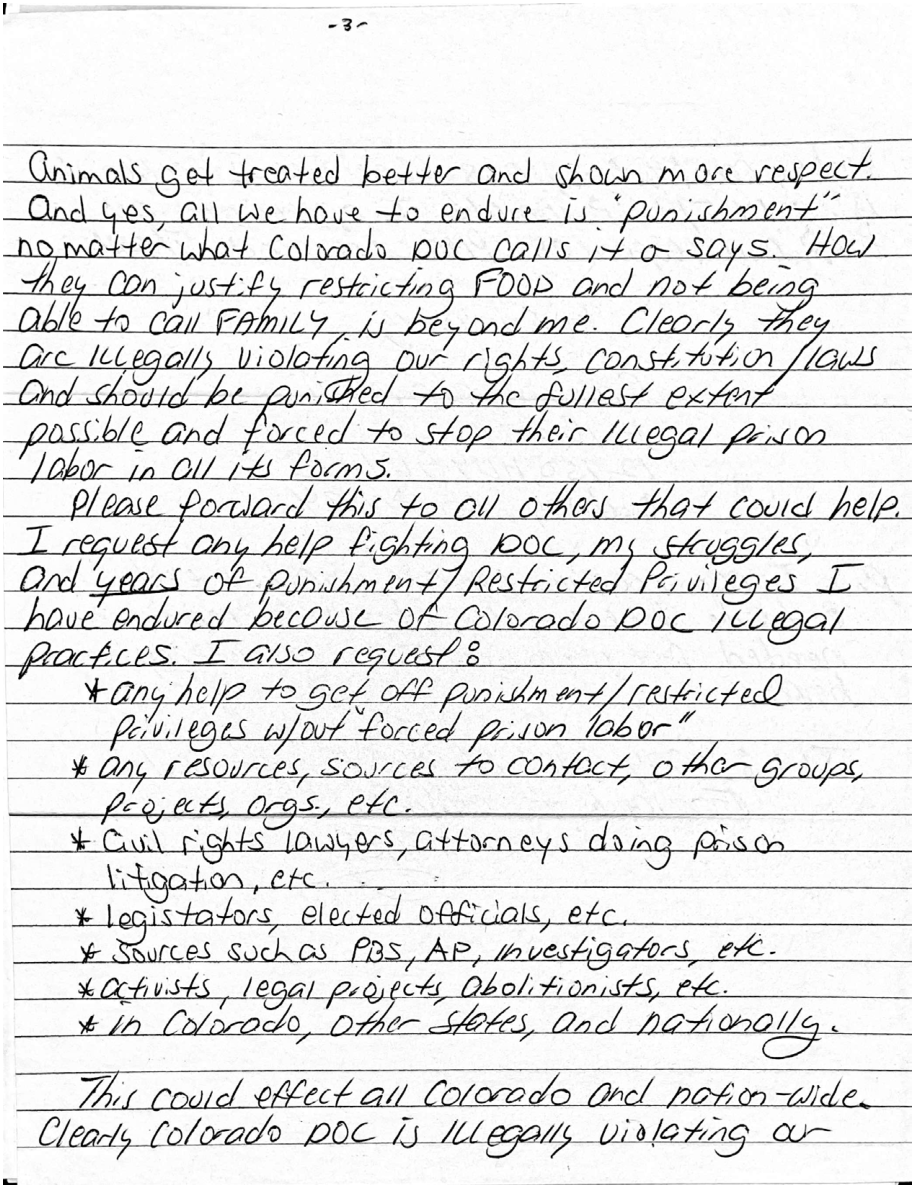 -3-
Animals get treated better and shown more respect.
And yes, all we have to endure is "punishment"
no matter what Colorado DOC calls it or says. How
they can justify restricting FOOD and not being
able to call FAMILY, is beyond me. Clearly they
are illegally violating our rights, constitution/laws
and should be punished to the fullest extent
possible and forced to stop their illegal prison
labor in all its forms.
Please forward this to all others that could help.
I request any help fighting DOC, my struggles,
and years of punishment/Restricted Privileges I
have endured because of Colorado DOC illegal
practices. I also request:
* any help to get off punishment/restricted
privileges w/out "forced prison labor"
* any resources, sources to contact, other groups,
projects, orgs., etc.
* Civil rights lawyers, attorneys doing prison
litigation, etc.
* legistators, elected officials, etc.
* sources such as PBS, AP, investigators, etc.
* activists, legal projects, abolitionists, etc.
* in Colorado, other states, and nationally.
This could effect all Colorado and nation-wide.
Clearly Colorado DOC is illegally violating our